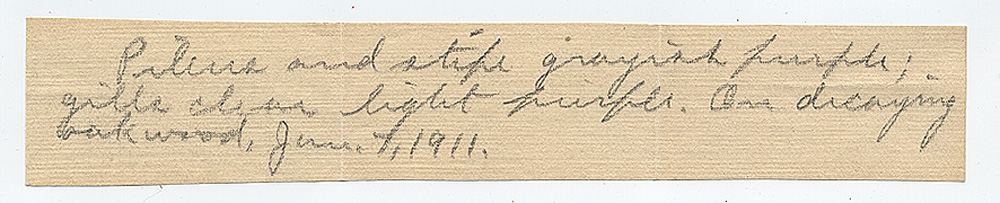 Pileus and stipe grayish purple;
gills clear light purple. On decaying
oak wood, 7, 1911.